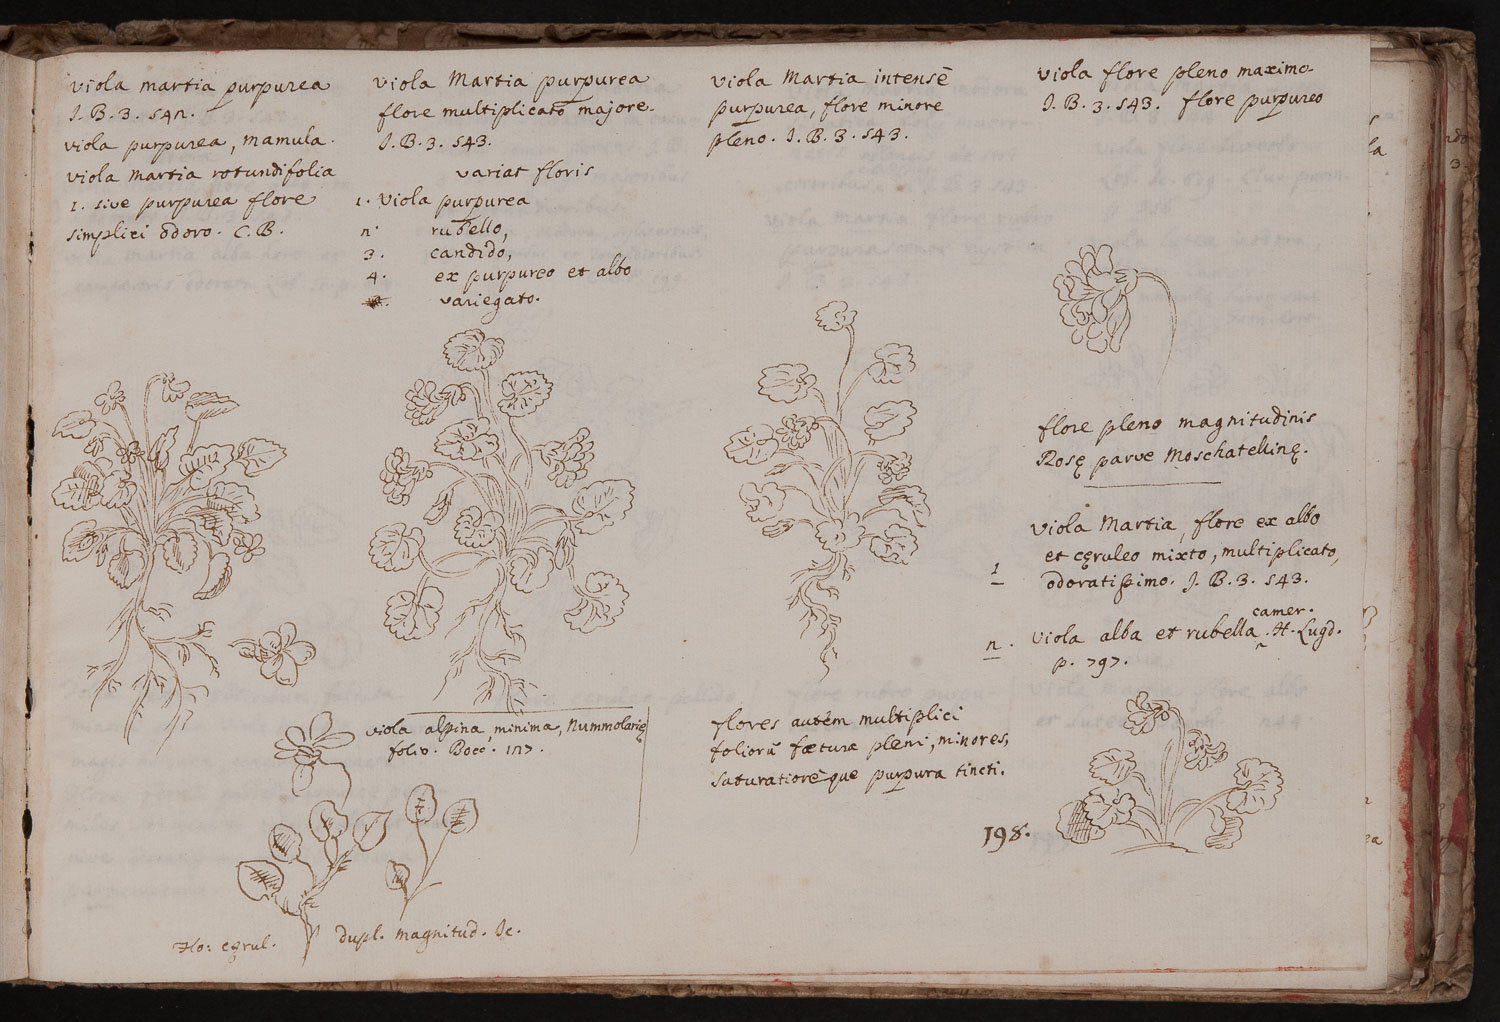 viola martia purpurea
J. B. 3. 542.
viola purpurea, mamula.
viola martia rotundifolia
1. sive purpurea flore
simplici odoro. C. B.
viola Martia purpurea
flore multiplicato majore.
J. B. 3. 543.
variat floris
1. viola purpurea
2. rubello,
3. candido,
4. ex purpureo et albo
variegato.
viola Martia intensè
purpurea, flore minore
pleno. J. B. 3. 543.
viola flore pleno maximo
J. B. 3. 543. flore purpureo
flore pleno magnitudinis
Rosę parve Moschatellinę.
viola Martia, flore ex albo
et cęruleo mixto, multiplicato,
1 odoratißimo. J. B. 3. 543.
camer.
2. viola alba et rubella ‸. H. Lugd.
p. 797.
viola alpina, minima, Nummolarię
folio. Bocc. 127.
flores autèm multiplici
foliorū fœtura pleni, minores,
saturatiorèque purpura tincti.
198.
Flo: cęrul. dupl. magnitud. Ic.